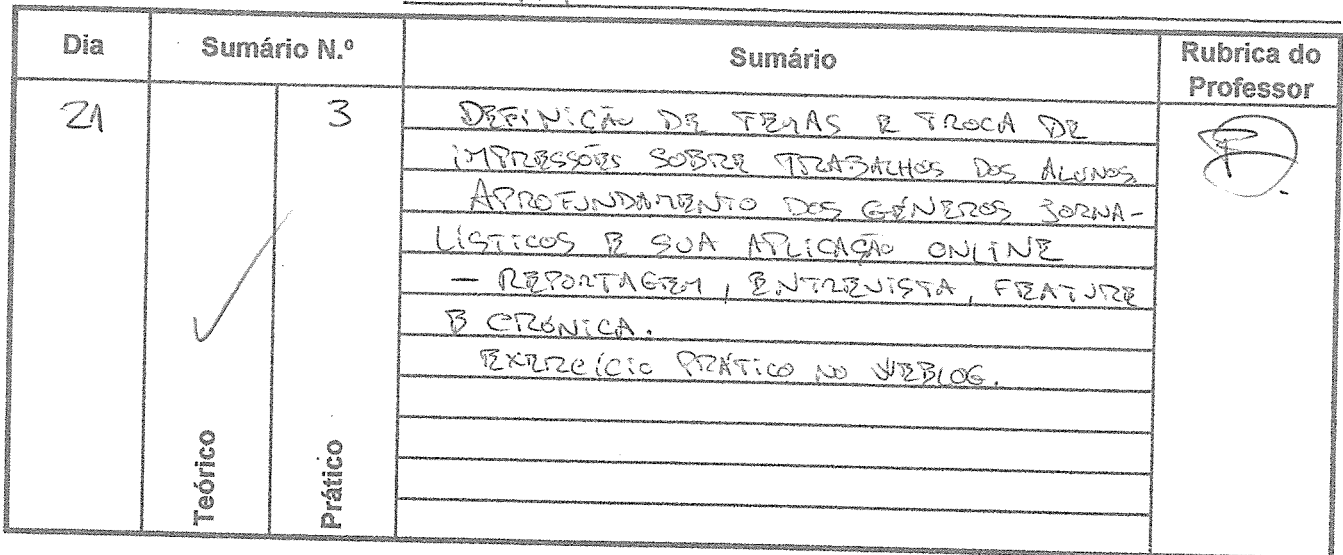 Dia
Sumário N.º
Sumário
Rubrica do
Professor
21
3
DEFINIÇÃO DE TEMAS E TROCA DE
IMPRESSÕES SOBRE TRABALHOS DOS ALUNOS.
APROFUNDAMENTO DOS GÉNEROS JORNA-
LÍSTICOS E SUA APLICAÇÃO ONLINE
— REPORTAGEM, ENTREVISTA, FEATURE
E CRÓNICA.
EXERCÍCIO PRÁTICO NO WEBLOG.
Teórico
Prático